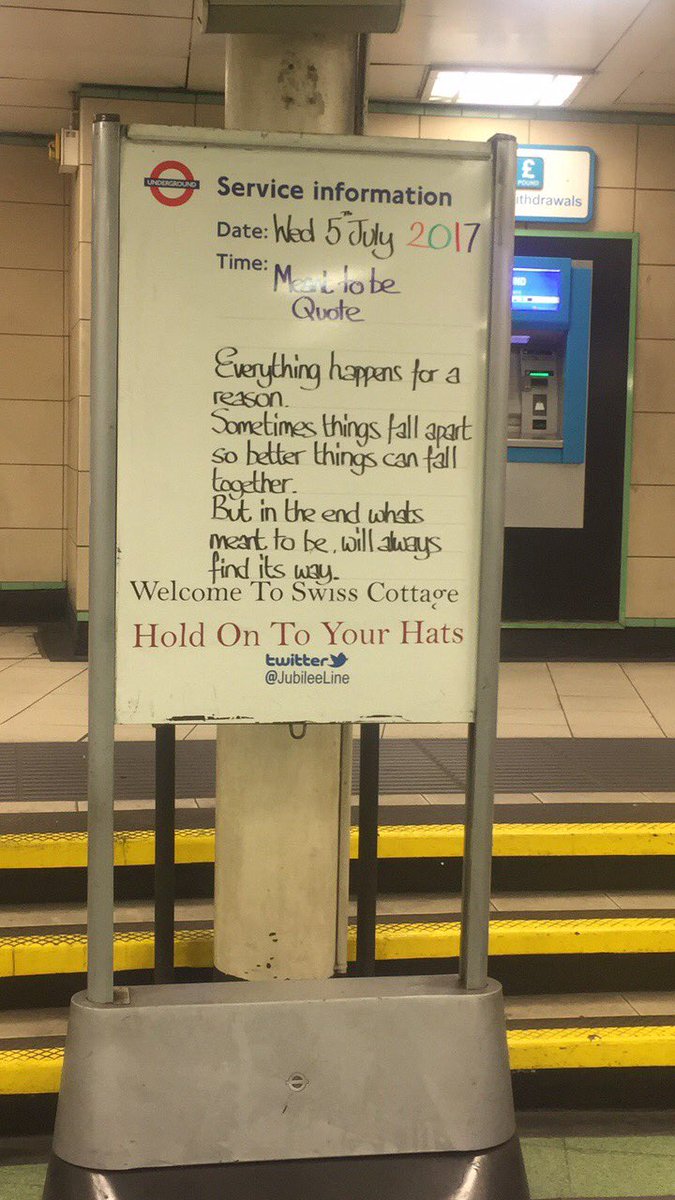 UNDERGROUND
Service information
Date: Wed 5th July 2017
Time: Meant to be
Quote
Everything happens for a
reason.
Sometimes things fall apart
so better things can fall
together.
But in the end whats
meant to be, will always
find its way.
Welcome To Swiss Cottage
Hold On To Your Hats
twitter
@JubileeLine
£
POUND
ithdrawals